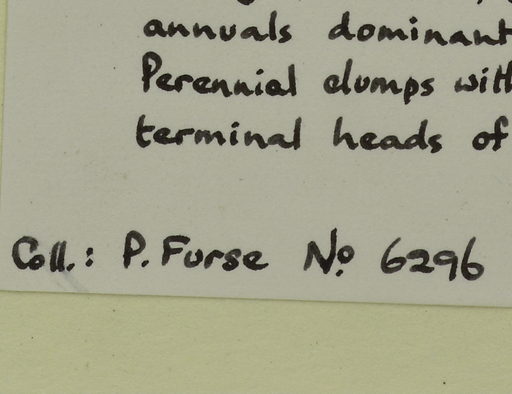 annuals dominant
Perennial clumps with
terminal heads of
Coll.: P. Furse No. 6296